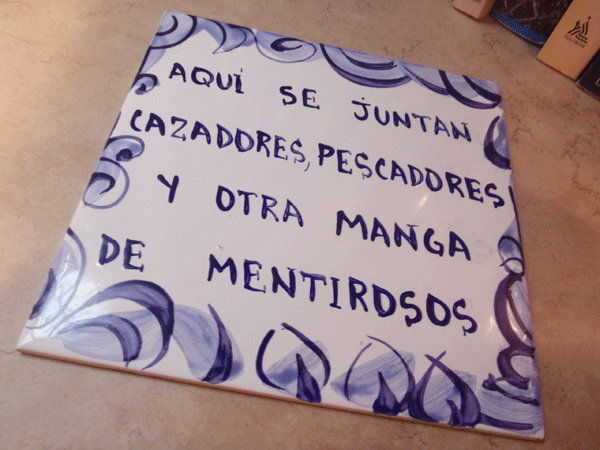 AQUÍ SE JUNTAN
CAZADORES, PESCADORES
Y OTRA MANGA
DE MENTIROSOS